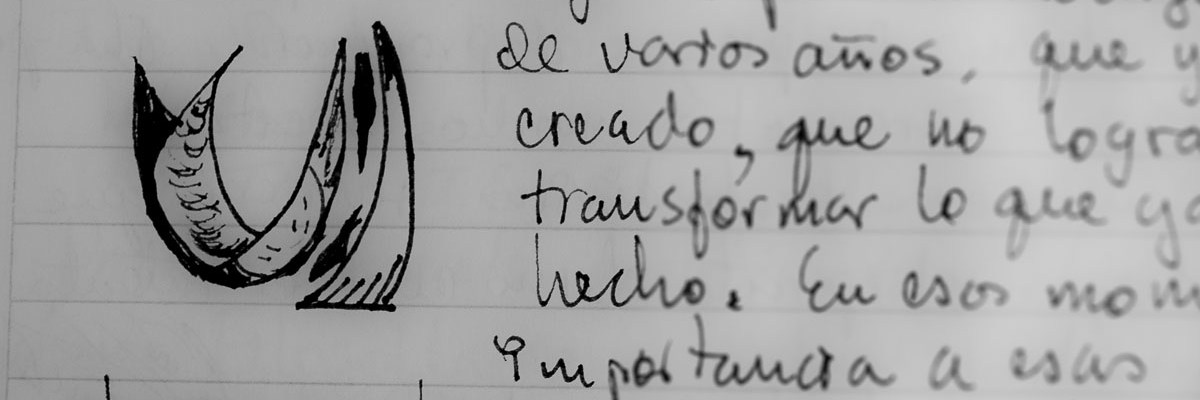 de varios años, que
creado, que no
transformar lo que
hecho. En esos
importancia a esas